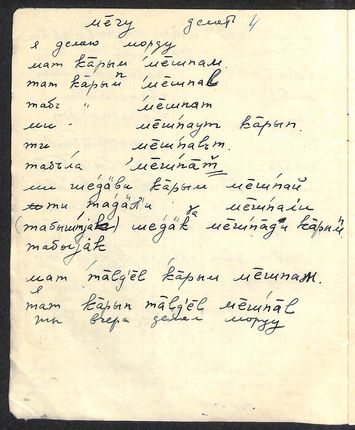 мēчу делат 4
я делаю морду
мат кāрып ме̄шпам.
тат кāрып ме̄шпаl
табы " ме̄шпат
ми - ме̄шпаут кāрып.
ти ме̄шпаlт.
табыла ме̄шпāт
ми шедäви кāрып ме̄шпай
ти тадäл'и ме̄шпали
(табыштjäк) шедäк ме̄шпади кāрып
табыjäк
мат тāлд'ēл кāрып ме̄шпам.
тат кāрып тāлд'ēл ме̄шпāl
ты вчера делал морду